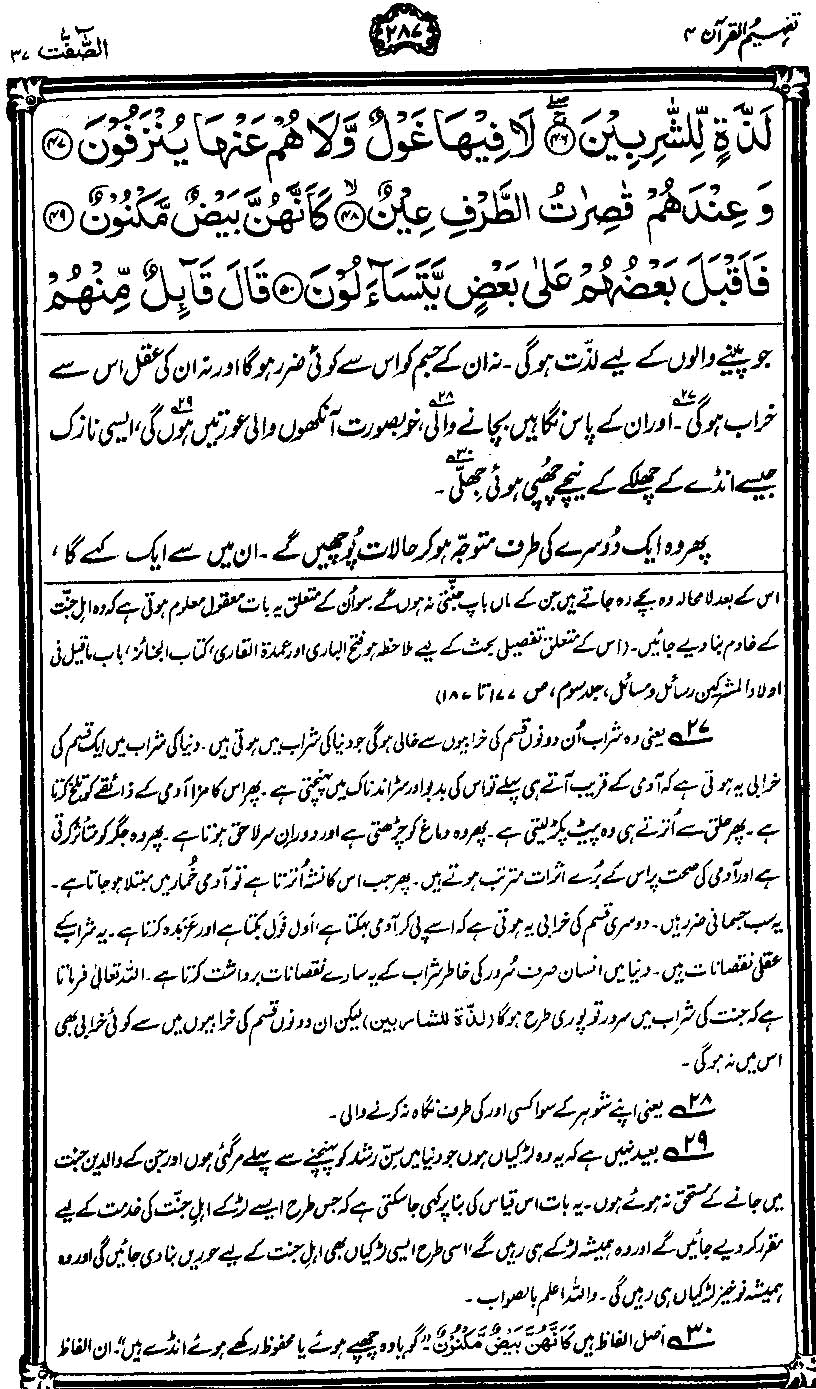 تفہیم القرآن ۴
۲۸۷
الصّٰفّٰت ۳۷
لَذَّةٍ لِّلشّٰرِبِيْنَ ﴿۴۶﴾ لَا فِيْهَا غَوْلٌ وَّلَا هُمْ عَنْهَا يُنْزَفُوْنَ ﴿۴۷﴾
وَ عِنْدَهُمْ قٰصِرٰتُ الطَّرْفِ عِيْنٌ ﴿۴۸﴾ كَاَنَّهُنَّ بَيْضٌ مَّكْنُوْنٌ ﴿۴۹﴾
فَاَقْبَلَ بَعْضُهُمْ عَلٰى بَعْضٍ يَّتَسَآءَلُوْنَ ﴿۵۰﴾ قَالَ قَآئِلٌ مِّنْهُمْ
جو پینے والوں کے لیے لذّت ہوگی۔ نہ ان کے جسم کو اس سے کوئی ضرر ہوگا اور نہ ان کی عقل اس سے
خراب ہوگی۲۷۔ اور ان کے پاس نگاہیں بچانے والی۲۸، خوبصورت آنکھوں والی عورتیں ہوں گی۲۹، ایسی نازک
جیسے انڈے کے چھلکے کے نیچے چھپی ہوئی جھلّی۳۰۔
پھر وہ ایک دُوسرے کی طرف متوجّہ ہو کر حالات پُوچھیں گے۔ ان میں سے ایک کہے گا،
اس کے بعد لامحالہ وہ بچے رہ جاتے ہیں جن کے ماں باپ جنّتی نہ ہوں گے۔ سو اُن کے متعلق یہ بات معقول معلوم ہوتی ہے کہ وہ اہلِ جنّت
کے خادم بنا دیے جائیں۔ (اس کے متعلق تفصیلی بحث کے لیے ملاحظہ ہو فتح الباری اور عمدۃ القاری، کتاب الجنائز، باب ماقیل فی
اولاد المشرکین رسائل و مسائل، جلد سوم، ص ۱۷۷ تا ۱۸۷)
۲۷ یعنی وہ شراب اُن دونوں قسم کی خرابیوں سے خالی ہوگی جو دنیا کی شراب میں ہوتی ہیں۔ دنیا کی شراب میں ایک قسم کی
خرابی یہ ہوتی ہے کہ آدمی کے قریب آتے ہی پہلے تو اس کی بدبو اور سڑاند ناک میں پہنچتی ہے۔ پھر اس کا مزا آدمی کے ذائقے کو تلخ کرتا
ہے۔ پھر حلق سے اُترتے ہی وہ پیٹ پکڑ لیتی ہے۔ پھر وہ دماغ کو چڑھتی ہے اور دورانِ سر لاحق ہوتا ہے۔ پھر وہ جگر کو متأثر کرتی
ہے اور آدمی کی صحت پر اس کے بُرے اثرات مترتب ہوتے ہیں۔ پھر جب اس کا نشہ اُترتا ہے تو آدمی خُمار میں مبتلا ہو جاتا ہے۔
یہ سب جسمانی ضرر ہیں۔ دوسری قسم کی خرابی یہ ہوتی ہے کہ اسے پی کر آدمی بہکتا ہے، اَول فَول بکتا ہے اور عَربدہ کرتا ہے۔ یہ شراب کے
عقلی نقصانات ہیں۔ دنیا میں انسان صرف سُرور کی خاطر شراب کے یہ سارے نقصانات برداشت کرتا ہے۔ اللہ تعالیٰ فرماتا
ہے کہ جنت کی شراب میں سرور تو پوری طرح ہوگا (لذّة للشاربین) لیکن ان دونوں قسم کی خرابیوں میں سے کوئی خرابی بھی
اس میں نہ ہوگی۔
۲۸ یعنی اپنے شوہر کے سوا کسی اور کی طرف نگاہ نہ کرنے والی۔
۲۹ بعید نہیں ہے کہ یہ وہ لڑکیاں ہوں جو دنیا میں سنِّ رشد کو پہنچنے سے پہلے مر گئی ہوں اور جن کے والدین جنت
میں جانے کے مستحق نہ ہوئے ہوں۔ یہ بات اس قیاس کی بنا پر کہی جا سکتی ہے کہ جس طرح ایسے لڑکے اہلِ جنّت کی خدمت کے لیے
مقرر کر دیے جائیں گے اور وہ ہمیشہ لڑکے ہی رہیں گے، اسی طرح ایسی لڑکیاں بھی اہلِ جنت کے لیے حوریں بنا دی جائیں گی اور وہ
ہمیشہ نوخیز لڑکیاں ہی رہیں گی۔ واللہ اعلم بالصواب۔
۳۰ اصل الفاظ ہیں كَاَنَّهُنَّ بَيْضٌ مَّكْنُوْنٌ۔ "گویا وہ چھپے ہوئے یا محفوظ رکھے ہوئے انڈے ہیں"۔ ان الفاظ